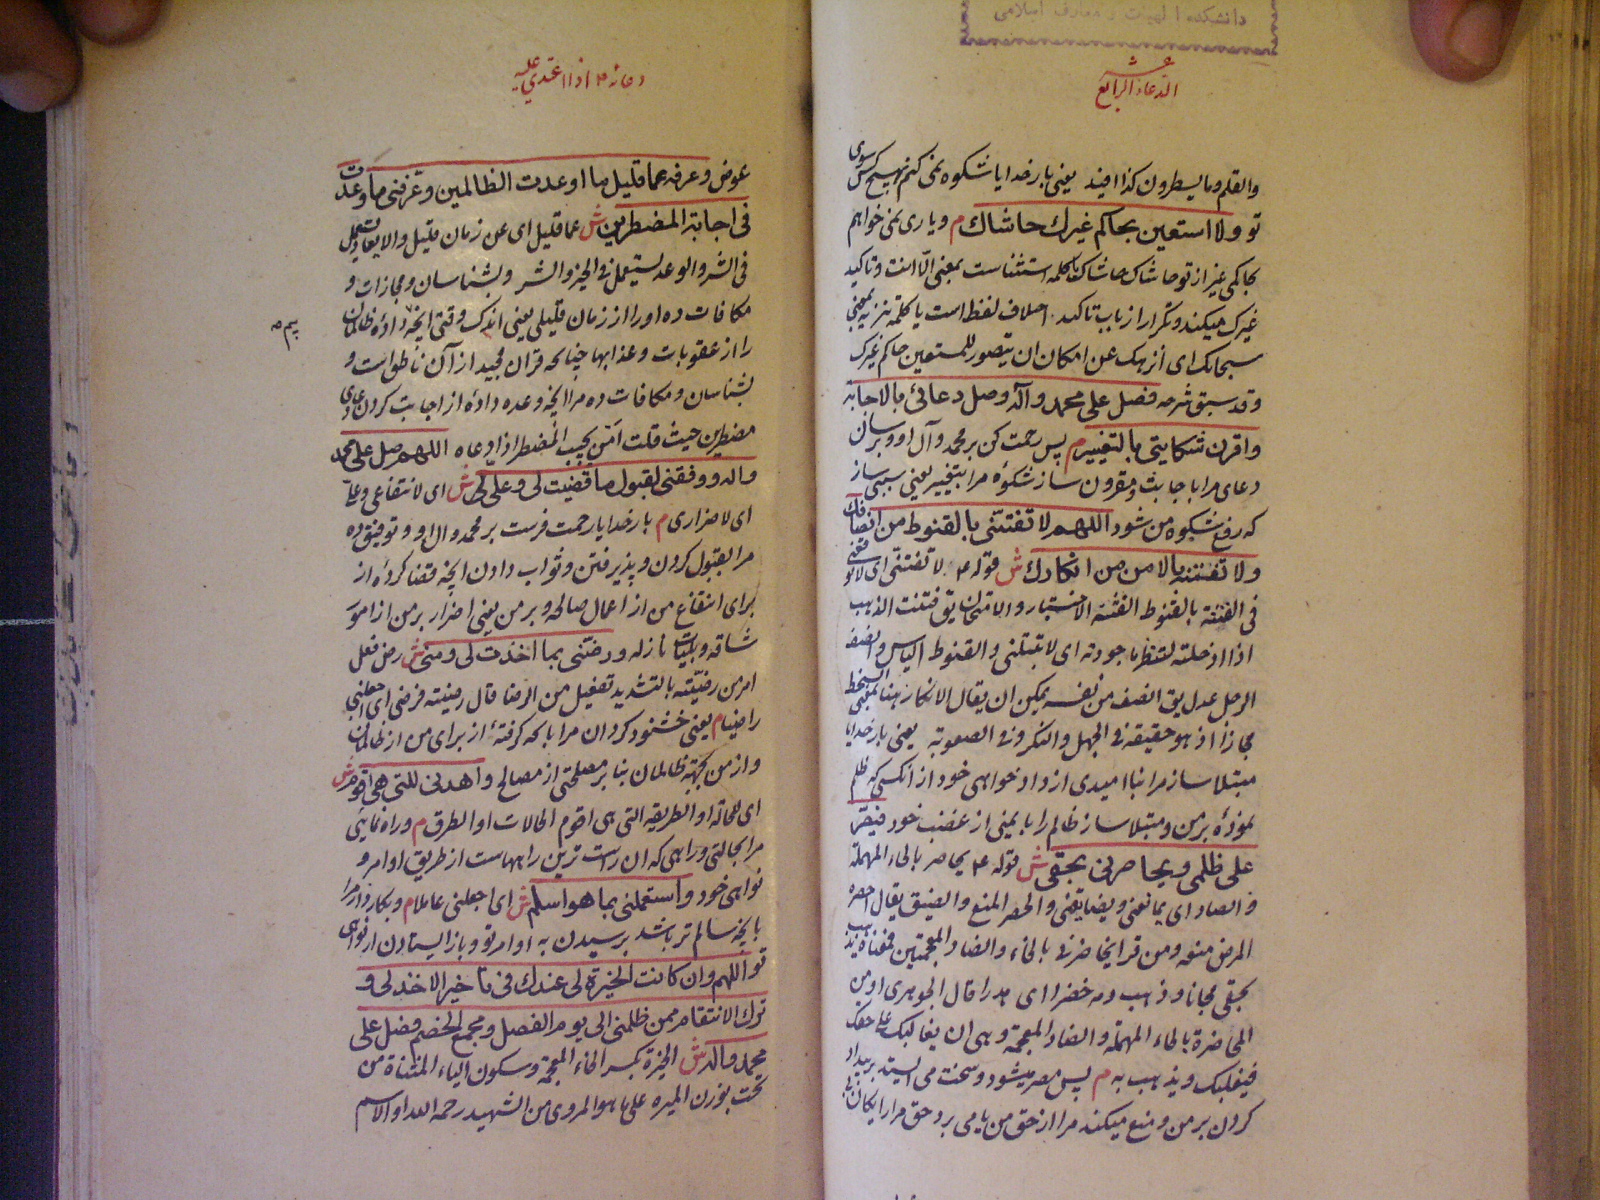 دانشکده الهیات و معارف اسلامی
الدعاء الرابع عشر
والقلم وما یسطرون کذا افید یعنی بار خدایا شکوه نمی کنم بهیچ کس سوی
تو ولا استعین بحاکم غیرك حاشاك م و یاری نمی خواهم
بحاکمی غیر از تو حاشاک حاشاک کلمه استثناست بمعنی الا انت و تاکید
غیرک میکند و تکرار از باب تاکید اختلاف لفظ است یا کلمه تنزیه بمعنی
سبحانک ای انزهک عن امکان ان یتصور للمستعین حاکم غیرک
وقد سبق شرحه فصل علی محمد وآله وصل دعائی بالاجابة
واقرن شکایتی بالتغییر م پس رحمت کن بر محمد و آل او و برسان
دعای مرا باجابت و مقرون ساز شکوه مرا بتغییر یعنی سببی ساز
که رفع شکوه من شود اللهم لا تفتنی بالقنوط من انصافك
ولا تفتنه بالامن من انکارك ش قوله ع لا تفتنی ای لا توقعنی
فی الفتنة بالقنوط الفتنة الاختبار والامتحان یق فتنت الذهب
اذا ادخلته لتنظر ما جودته ای لا تبتلنی والقنوط الیاس وانصف
الرجل عدل یق انصف من نفسه یمکن ان یقال الانکار هنا بمعنی السخط
مجازا اذ هو حقیقة فی الجهل والنکر وفی الصعوبة یعنی بار خدایا
مبتلا ساز مرا بنا امیدی از داد خواهی خود از انکسی که ظلم
نموده بر من و مبتلا ساز ظالم را بایمنی از غضب خود فیصر
علی ظلمی ویحاصرنی بحقی ش قوله ع یحاصر بالحاء المهملة
والصاد ای یمانعنی ویضایقنی والحصر المنع والضیق یقال احصره
المرض منعه ومن قرا یخاضرنی بالخاء والضاد المعجمتین فمعناه یذهب
بحقی مجانا وذهب دمه خضرا ای هدرا قال الجوهری او من
المحاضرة بالحاء المهملة والضاد المعجمة وهی ان یغالبک علی حقک
فیغلبک ویذهب به م پس مصر میشود و سخت می ایستد بر بیداد
کردن بر من و منع میکند مرا از حق من یا می برد حق مرا رایکان
دعائه ع اذا اعتدی علیه
عوض وعرفه عما قلیل ما اوعدت الظالمین وعرفنی ما وعدت
فی اجابة المضطرین ش عما قلیل ای عن زمان قلیل والایعاد یستعمل
فی الشر والوعد یستعمل فی الخیر والشر و بشناسان و مجازات و
مکافات ده او را از زمان قلیلی یعنی اندک وقتی انچه داده ظالمان
را از عقوبات و عذابها چنانچه قران مجید از آن ناطق است و
بشناسان و مکافات ده مرا انچه وعده داده از اجابت کردن دعای
مضطرین حیث قلت امن یجیب المضطر اذا دعاه اللهم صل علی محمد
واله ووفقنی لقبول ما قضیت لی وعلی ش ای لانتفاعی وعلی
ای لاضراری م بار خدایا رحمت فرست بر محمد وال او و توفیق ده
مرا بقبول کردن و پذیرفتن و ثواب دادن انچه قضا کرده از
برای انتفاع من از اعمال صالحه و بر من یعنی اضرار بر من از امور
شاقه و بلیات نازله ورضنی بما اخذت لی ومنی ش رض فعل
امر من رضیته بالتشدید تفعیل من الرضا قال رضیته فرضی ای اجعلنی
راضیا م یعنی خشنود گردان مرا بانچه گرفته از برای من از ظالمان
و از من بجهة ظالمان بنا بر مصلحتی از مصالح واهدنی للتی هی اقوم ش
ای للحالة او الطریقه التی هی اقوم الحالات او الطرق م و راه نمای
مرا بحالتی و راهی که ان راست ترین راههاست از طریق اوامر و
نواهی خود واستعملنی بما هو اسلم ش ای اجعلنی عاملا م و بکار دار مرا
بانچه سالم تر باشد برسیدن به اوامر تو و باز ایستادن از نواهی
تو اللهم وان کانت الخیرة لی عندك فی تاخیر الاخذ لی و
ترك الانتقام ممن ظلمنی الی یوم الفصل ومجمع الخصم فصل علی
محمد واله ش الخیرة بکسر الخاء المعجمة وسکون الیاء المثناة من
تحت بوزن المیره علی ما هو المروی من الشهید رحمه الله او الاسم